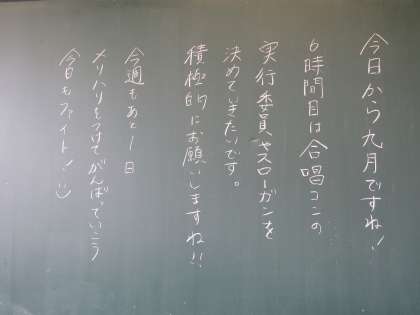 今日から九月ですね!
6時間目は合唱コンの
実行委員やスローガンを
決めていきたいです。
積極的にお願いしますね!!
今週もあと1日
メリハリをつけてがんばっていこう
今日もファイト!:)